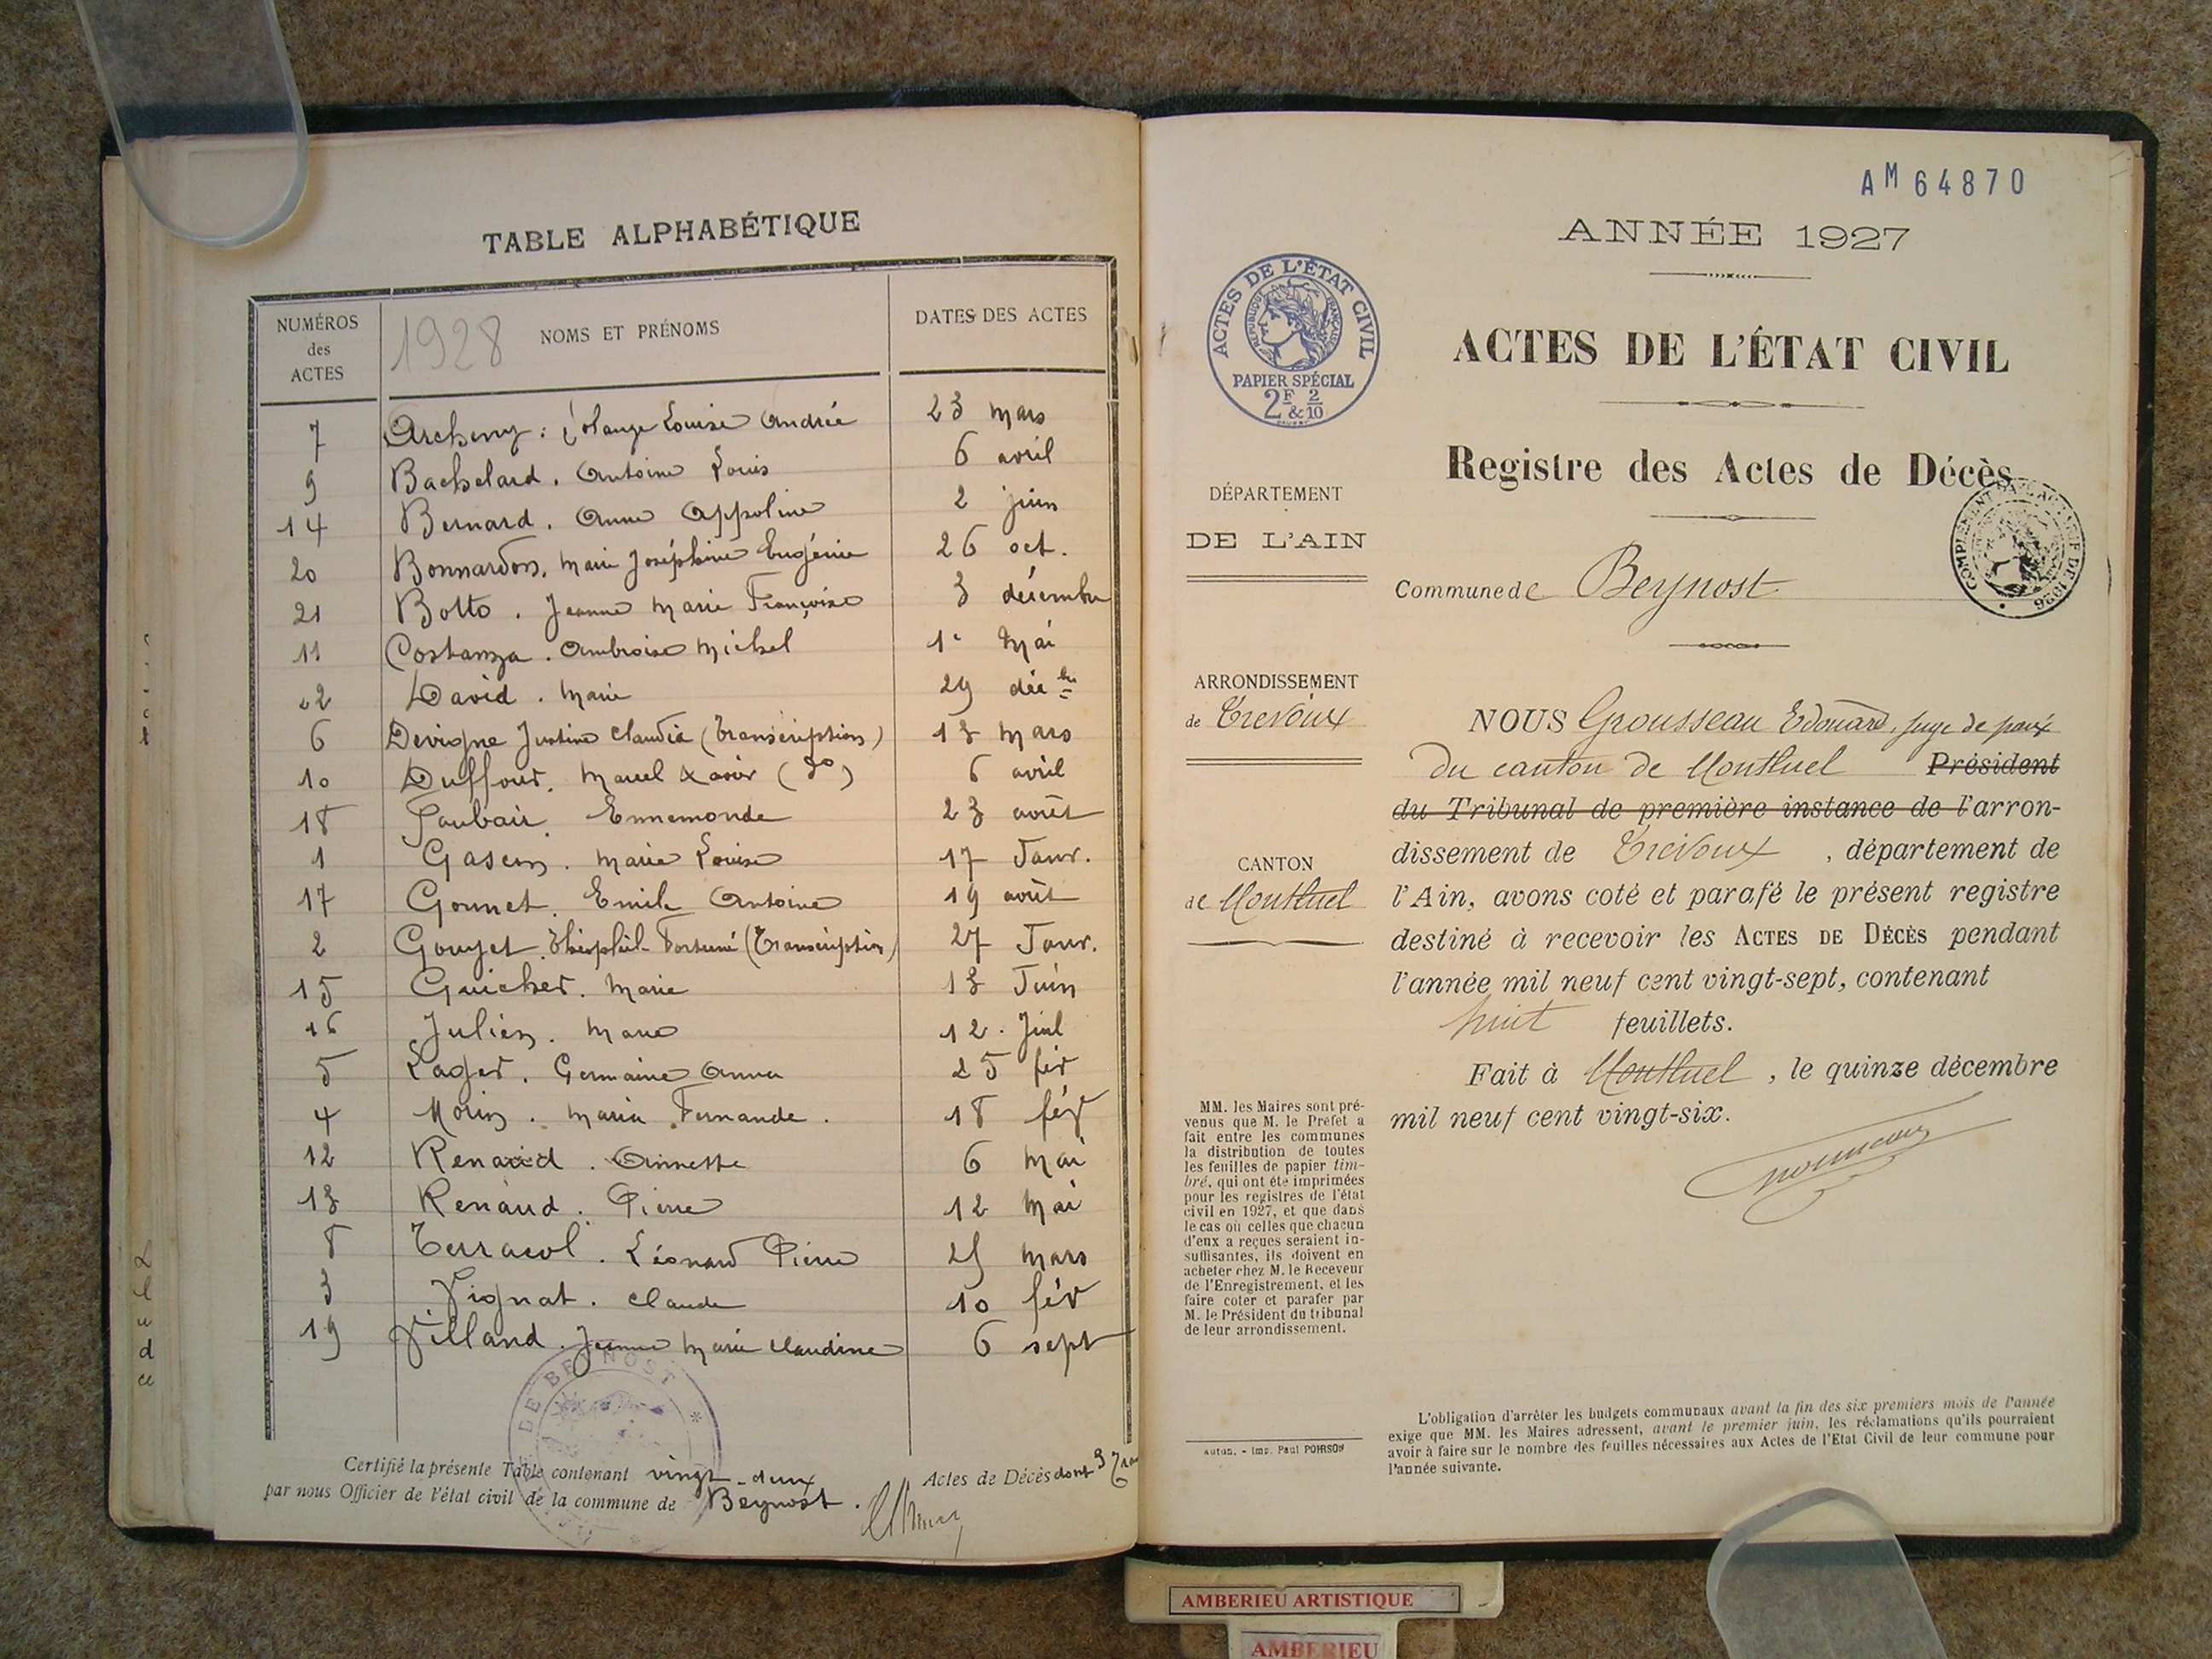 TABLE ALPHABÉTIQUE
NUMÉROS des ACTES
1928 NOMS ET PRÉNOMS
DATES DES ACTES
7 Louise Andrée 23 mars
9 Bachelard. Antoine Louis 6 avril
14 Bernard. Anne Appoline 2 juin
20 Bonnardon. Marie Joséphine Eugénie 26 oct.
21 Botto. Jeanne Marie Françoise 3 décembre
11 Costanza. Ambroise Michel 1° Mai
22 David. Marie 29 déc bre
6 Devigne Justine Claudia (Transcription) 13 mars
10 Duffour. Marcel Xavier (do) 6 avril
18 Ennemonde 23 août
1 Marie Louise 17 Janv.
17 Gonnet. Emile Antoine 19 août
2 Goujet. Fortuné (Transcription) 27 Janv.
15 Guicher. Marie 13 Juin
16 Julien. 12. Juil
5 Lager. Germaine Anna 25 fév
4 Morin. Maria Fernande. 18 fév
12 Renaud. Annette 6 Mai
13 Renaud. Pierre 12 Mai
8 Terracol. Léonard Pierre 25 mars
3 Vignat. Claude 10 fév
19 Villand. Jeanne Marie Claudine 6 sept
DE BEYNOST
Certifié la présente Table contenant vingt-deux Actes de Décès dont 3
par nous Officier de l'état civil de la commune de Beynost.
AM 64870
ANNÉE 1927
ACTES DE L'ÉTAT CIVIL
RÉPUBLIQUE FRANÇAISE
PAPIER SPÉCIAL
2F & 2/10
ACTES DE L'ÉTAT CIVIL
Registre des Actes de Décès
DÉPARTEMENT
DE L'AIN
Commune de Beynost
ARRONDISSEMENT
de Trévoux
CANTON
de Montluel
NOUS Grousseau Edouard, juge de paix
du canton de Montluel Président
du Tribunal de première instance de l'arron-
dissement de Trévoux, département de
l'Ain, avons coté et parafé le présent registre
destiné à recevoir les ACTES DE DÉCÈS pendant
l'année mil neuf cent vingt-sept, contenant
huit feuillets.
Fait à Montluel, le quinze décembre
mil neuf cent vingt-six.
MM. les Maires sont pré-
venus que M. le Préfet a
fait entre les communes
la distribution de toutes
les feuilles de papier tim-
bré, qui ont été imprimées
pour les registres de l'état
civil en 1927, et que dans
le cas où celles que chacun
d'eux a reçues seraient in-
suffisantes, ils doivent en
acheter chez M. le Receveur
de l'Enregistrement, et les
faire coter et parafer par
M. le Président du tribunal
de leur arrondissement.
Autun. - Imp. Paul POIRSON
L'obligation d'arrêter les budgets communaux avant la fin des six premiers mois de l'année
exige que MM. les Maires adressent, avant le premier juin, les réclamations qu'ils pourraient
avoir à faire sur le nombre des feuilles nécessaires aux Actes de l'Etat Civil de leur commune pour
l'année suivante.
AMBERIEU ARTISTIQUE
AMBERIEU